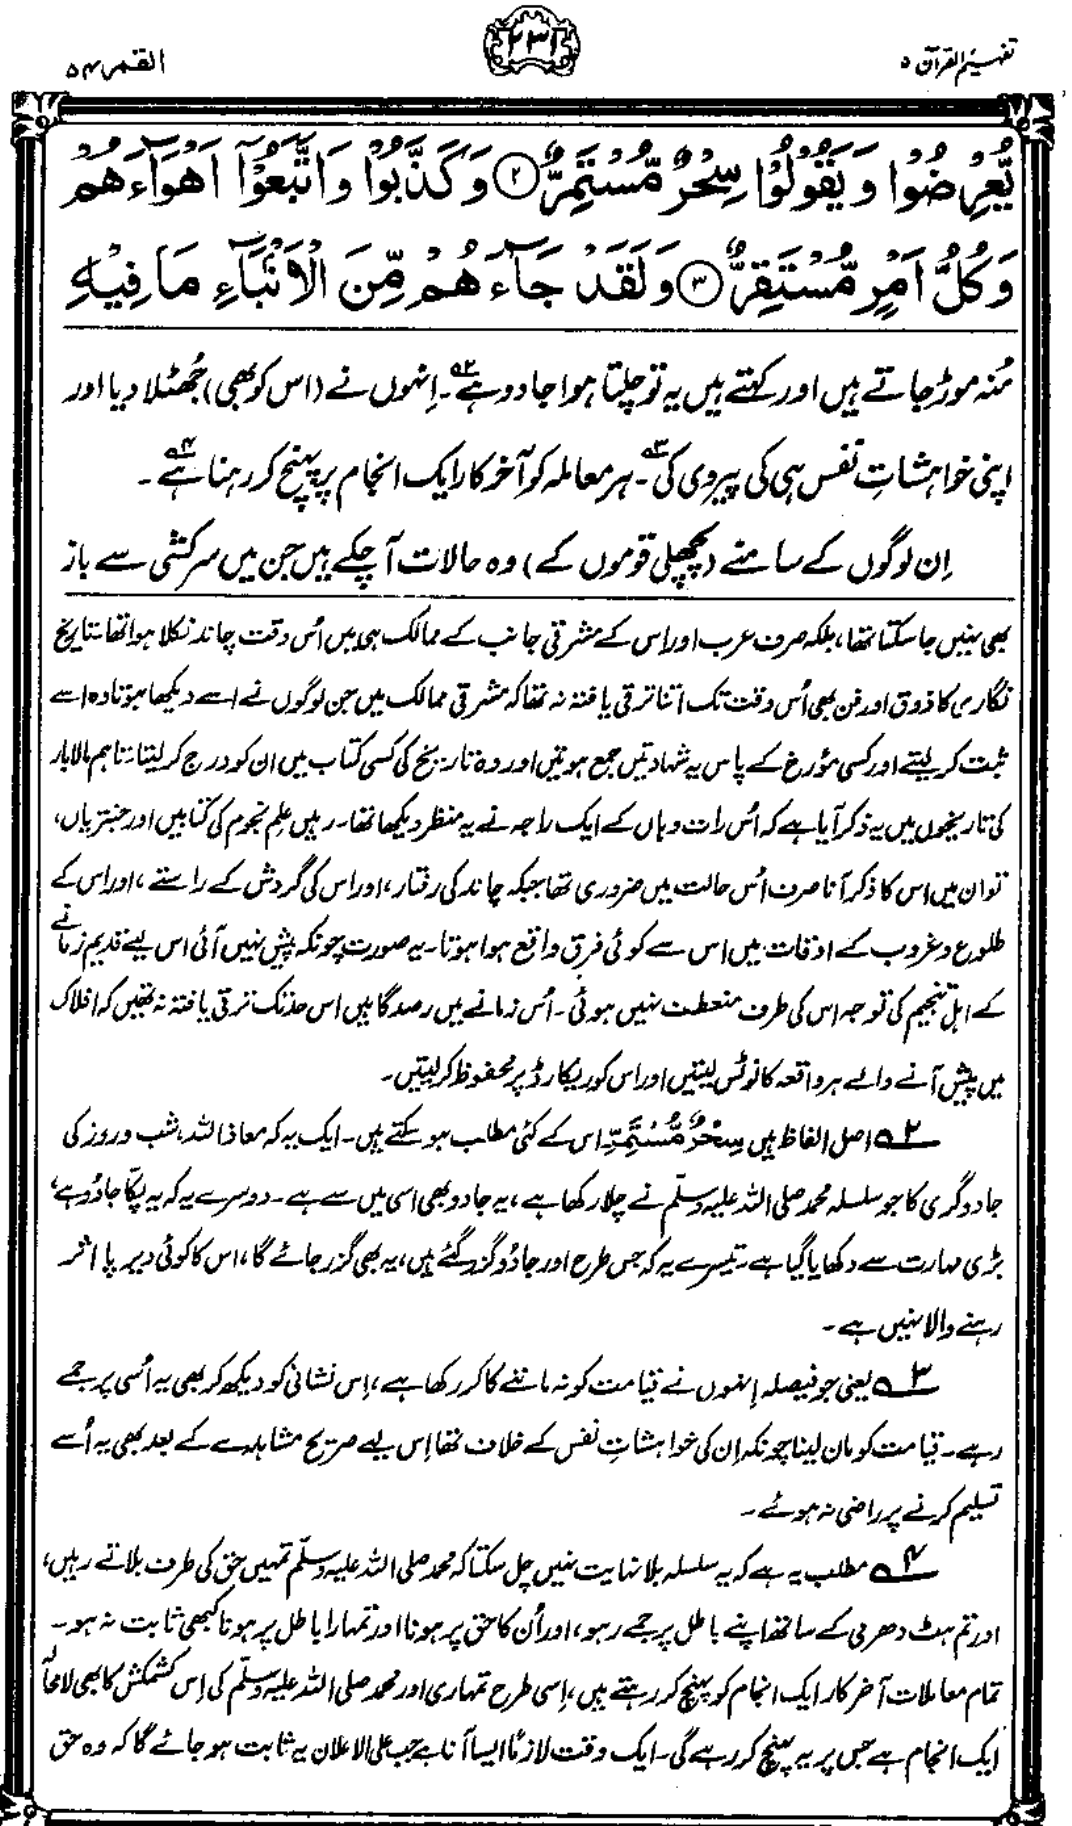 تفہیم القرآن ۵
۲۳۱
القمر ۵۴
يُّعْرِضُوْا وَيَقُوْلُوْا سِحْرٌ مُّسْتَمِرٌّ ۲ وَكَذَّبُوْا وَاتَّبَعُوْٓا اَهْوَآءَهُمْ
وَكُلُّ اَمْرٍ مُّسْتَقِرٌّ ۳ وَلَقَدْ جَآءَهُمْ مِّنَ الْاَنْۢبَآءِ مَا فِيْهِ
مُنہ موڑ جاتے ہیں اور کہتے ہیں یہ تو چلتا ہوا جادو ہے۲؎۔ اِنہوں نے (اس کو بھی) جُھٹلا دیا اور
اپنی خواہشاتِ نفس ہی کی پیروی کی۳؎۔ ہر معاملہ کو آخر کار ایک انجام پر پہنچ کر رہنا ہے۴؎۔
اِن لوگوں کے سامنے (پچھلی قوموں کے) وہ حالات آ چکے ہیں جن میں سرکشی سے باز
بھی نہیں جا سکتا تھا، بلکہ صرف عرب اور اس کے مشرقی جانب کے ممالک ہی میں اُس وقت چاند نکلا ہوا تھا۔ تاریخ
نگاری کا ذوق اور فن بھی اُس وقت تک اتنا ترقی یافتہ نہ تھا کہ مشرقی ممالک میں جن لوگوں نے اسے دیکھا ہوتا وہ اسے
ثبت کر لیتے اور کسی مؤرخ کے پاس یہ شہادتیں جمع ہوتیں اور وہ تاریخ کی کسی کتاب میں ان کو درج کر لیتا۔ تاہم مالابار
کی تاریخوں میں یہ ذکر آیا ہے کہ اُس رات وہاں کے ایک راجہ نے یہ منظر دیکھا تھا۔ رہیں علمِ نجوم کی کتابیں اور جنتریاں،
تو ان میں اس کا ذکر آنا صرف اُس حالت میں ضروری تھا جبکہ چاند کی رفتار، اور اس کی گردش کے راستے، اور اس کے
طلوع و غروب کے اوقات میں اس سے کوئی فرق واقع ہوا ہوتا۔ یہ صورت چونکہ پیش نہیں آئی اس لیے قدیم زمانے
کے اہلِ تنجیم کی توجہ اس کی طرف منعطف نہیں ہوئی۔ اُس زمانے میں رصدگاہیں اس حد تک ترقی یافتہ نہ تھیں کہ افلاک
میں پیش آنے والے ہر واقعہ کا نوٹس لیتیں اور اس کو ریکارڈ پر محفوظ کر لیتیں۔
۲؎ اصل الفاظ ہیں سِحْرٌ مُّسْتَمِرٌّ اس کے کئی مطلب ہو سکتے ہیں۔ ایک یہ کہ معاذ اللہ شب و روز کی
جادوگری کا جو سلسلہ محمد صلی اللہ علیہ وسلّم نے چلا رکھا ہے، یہ جادو بھی اسی میں سے ہے۔ دوسرے یہ کہ یہ پکّا جادُو ہے،
بڑی مہارت سے دکھایا گیا ہے۔ تیسرے یہ کہ جس طرح اور جادُو گزر گئے ہیں، یہ بھی گزر جائے گا، اس کا کوئی دیرپا اثر
رہنے والا نہیں ہے۔
۳؎ یعنی جو فیصلہ اِنہوں نے قیامت کو نہ ماننے کا کر رکھا ہے، اِس نشانی کو دیکھ کر بھی یہ اُسی پر جمے
رہے۔ قیامت کو مان لینا چونکہ اِن کی خواہشاتِ نفس کے خلاف تھا اِس لیے صریح مشاہدے کے بعد بھی یہ اُسے
تسلیم کرنے پر راضی نہ ہوئے۔
۴؎ مطلب یہ ہے کہ یہ سلسلہ بلا نہایت نہیں چل سکتا کہ محمد صلی اللہ علیہ وسلّم تمہیں حق کی طرف بلاتے رہیں،
اور تم ہٹ دھرمی کے ساتھ اپنے باطل پر جمے رہو، اور اُن کا حق پر ہونا اور تمہارا باطل پر ہونا کبھی ثابت نہ ہو۔
تمام معاملات آخر کار ایک انجام کو پہنچ کر رہتے ہیں، اِسی طرح تمہاری اور محمد صلی اللہ علیہ وسلّم کی اِس کشمکش کا بھی لامحالہ
ایک انجام ہے جس پر یہ پہنچ کر رہے گی۔ ایک وقت لازمًا ایسا آنا ہے جب علی الاعلان یہ ثابت ہو جائے گا کہ وہ حق